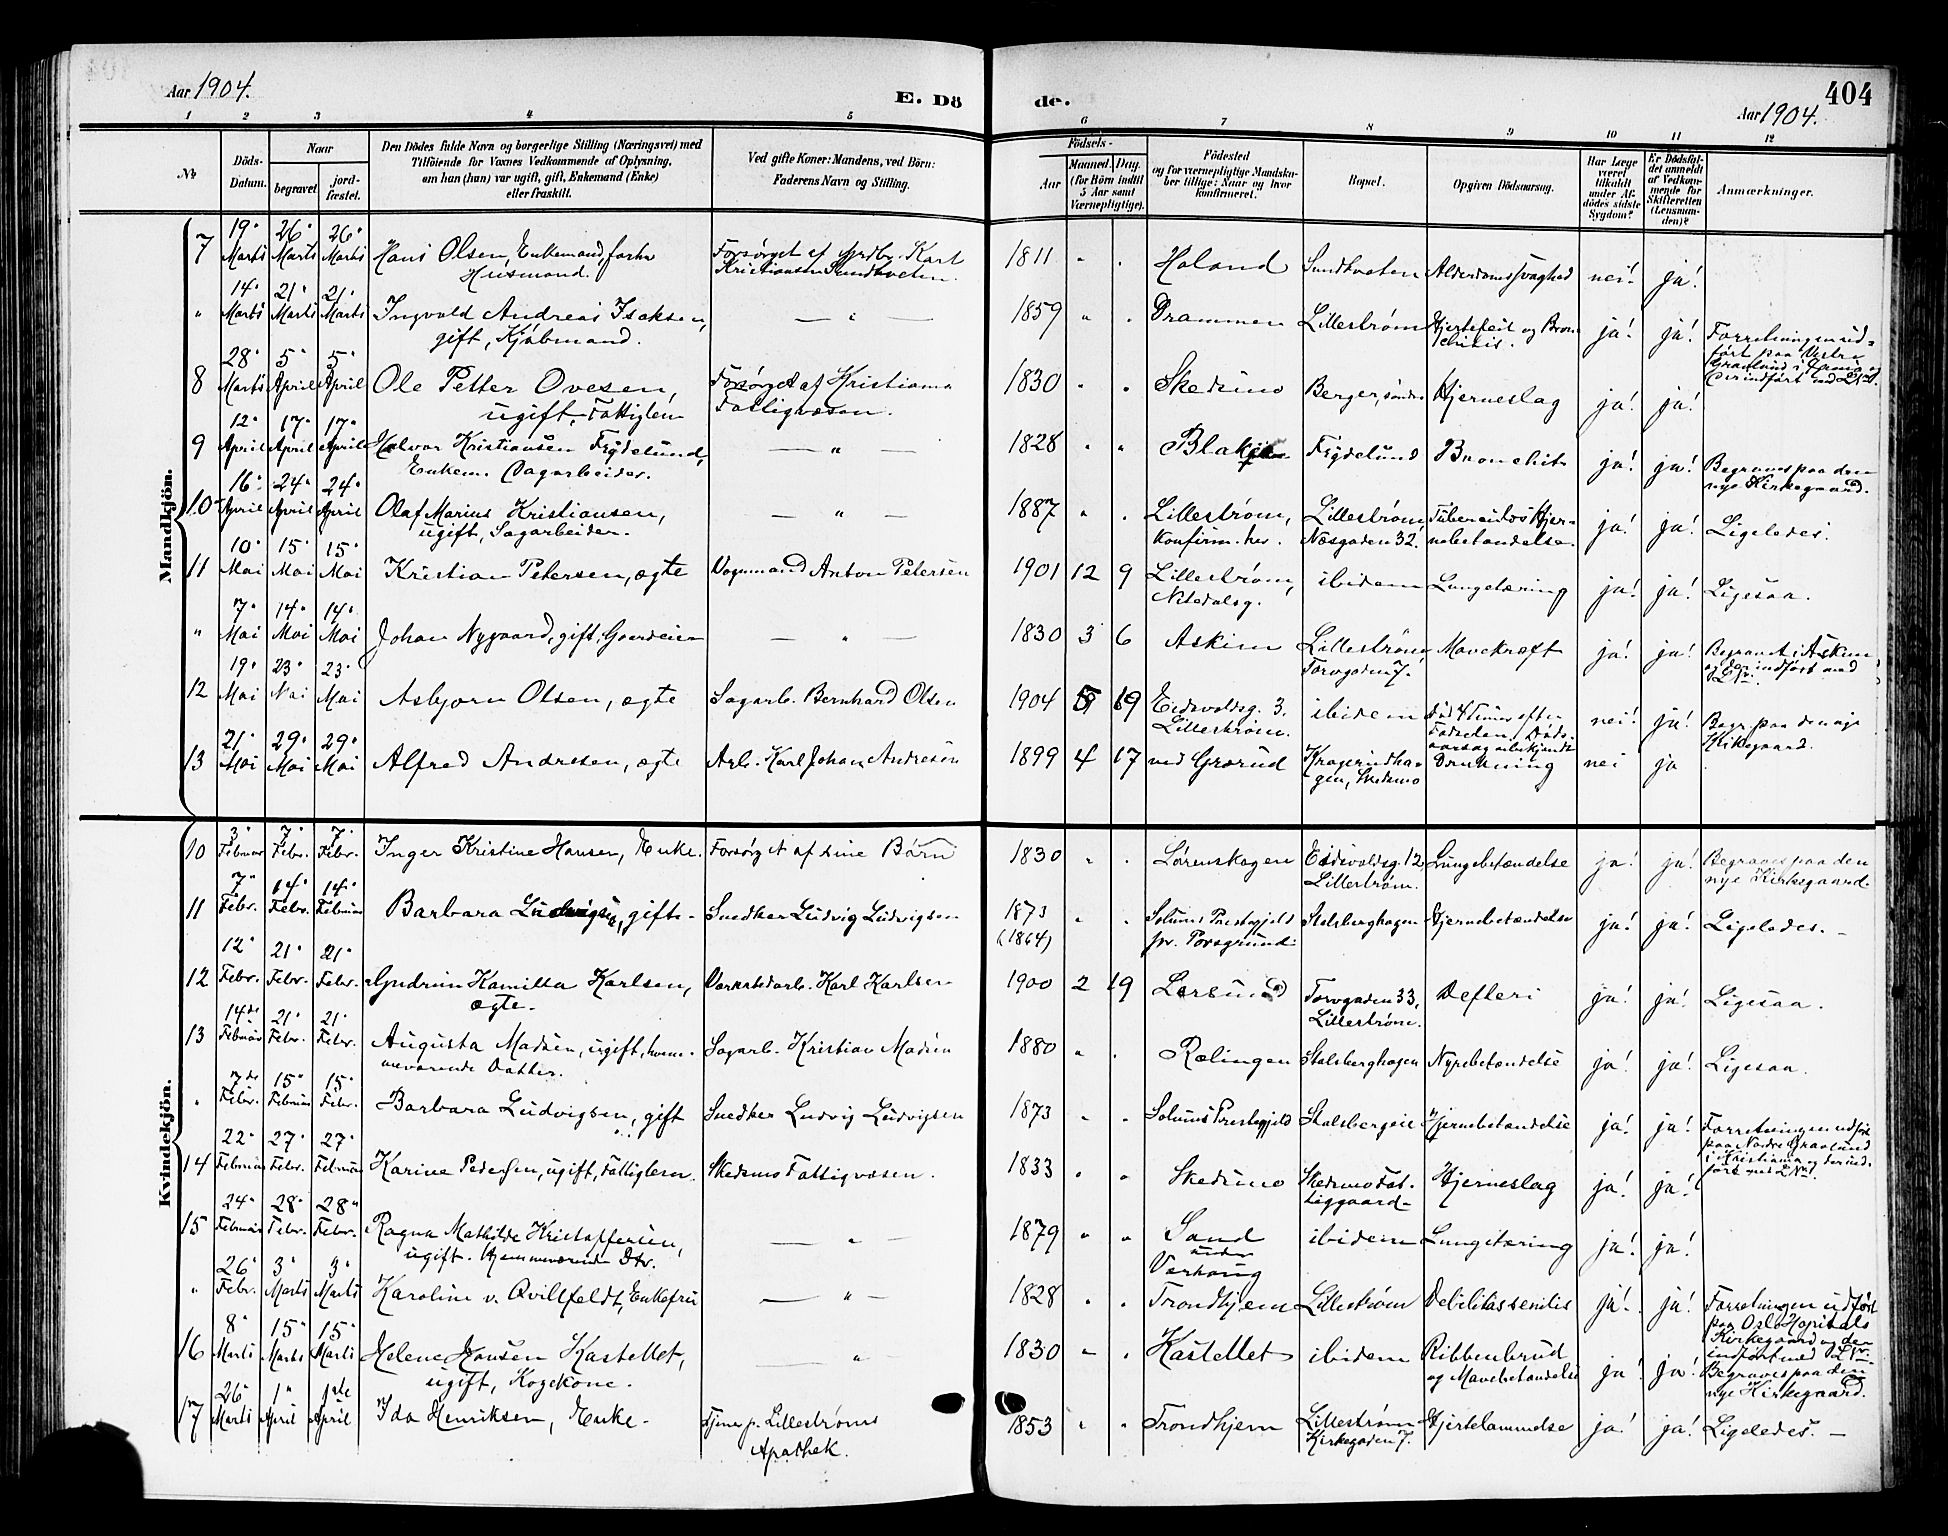 Aar 1904.
E. Dö
de.
404
Aar 1904.
1 2 3 4 5 6 7 8 9 10 11 12
№
Döds-Datum.
Naar
begravet
jord-fæstet.
Den Dödes fulde Navn og borgerlige Stilling (Næringsvei) med
Tilföiende for Voxnes Vedkommende af Oplysning,
om han (hun) var ugift, gift, Enkemand (Enke)
eller fraskilt.
Ved gifte Koner: Mandens, ved Börn:
Faderens Navn og Stilling.
Födsels-
Aar
Maaned. Dag.
(for Börn indtil
5 Aar samt
Værnepligtige).
Födested
og for værnepligtige Mandsku-
ber tillige: Naar og hvor
konfirmeret.
Bopæl.
Opgiven Dödsaarsag.
Har Læge
været
tilkaldt
under Af-
dödes sidste
Sygdom?
Er Dödsfal-
det anmeldt
af Vedkom-
mende for
Skifteretten
(Lensman-
den)?
Anmærkninger.
Mandkjön.
7 19' Marts 26' Marts 26' Marts Hans Olsen, Enkemand, forhv Husmand. Forsørget af Kristiansen Sundtveten. 1811 " " Høland Sundtveten Alderdomssvaghed nei! ja!
" 14' Marts 21' Marts 21' Marts Ingvald Andreas Isaksen, gift, Kjøbmand. — " — 1859 " " Drammen Lillestrøm Hjertefeil og Bronchitis. ja! ja! Forretningen udført paa Vestre Gravlund i
8 28' Marts 5' April 5' April Ole Petter Ovesen, ugift, Fattiglem Forsørget af Kristiania Fattigvæsen. 1830 " " Skedsmo Berger, søndre Hjerneslag ja! ja!
9 12' April 17' April 17' April Halvor Kristiansen Fejdelund, Enkem. Dagarbeider. — " — 1828 " " Blakjer Fejdelund Bronchit ja! ja! Begraves paa den nye Kirkegaard.
10 16' April 24' April 24' April Olaf Marius Kristiansen, ugift, Sagarbeider. — " — 1887 " " Lillestrøm, Konfirm. her. Lillestrøm, Næsgaden 32. Tuberculøs Hjernebetændelse. ja! ja! Ligeledes.
11 10' Mai 15' Mai 15' Mai Kristian Petersen, ægte Vognmand Anton Petersen 1901 12 9 Lillestrøm, Nitedalsg. ibidem Lungetæring ja! ja! Ligesaa.
" 7' Mai 14' Mai 14' Mai Johan Nygaard, gift, Gaardeier — " — 1830 3 6 Askim Lillestrøm Torvgaden 7. Mavekræft ja! ja! Begravet i Askim og der indført med L№.
12 19' Mai 23' Mai 23' Mai Asbjørn Olsen, ægte Sagarb. Bernhard Olsen 1904 5 19 Eidsvoldsg. 3. Lillestrøm. ibidem Død 4 Timer efter Fødselen, Dødsaarsag ubekjendt nei! ja! Begr. paa den nye Kirkegaard.
13 21' Mai 29' Mai 29' Mai Alfred Andresen, ægte Arb. Karl Johan Andresen 1899 4 17 ved Grorud Kragerindhagen, Skedsmo Drukning nei ja
Kvindekjön.
10 3' Februar 7' Febr. 7' Febr. Inger Kristine Hansen, Enke. Forsørget af sine Børn 1830 " " Lørenskogen Eidsvoldsg. 12, Lillestrøm. Lungebetændelse ja! ja! Begraves paa den nye Kirkegaard.
11 7' Febr. 14' Febr. 14' Februar Barbara Ludvigsen, gift. Snedker Ludvig Ludvigsen 1873 (1864) " " Solums Præstegjeld pr. Porsgrund. Stalsberghagen Hjernebetændelse ja! ja! Ligeledes. —
12 12' Febr. 21' Febr. 21' Febr. Gudrun Kamilla Karlsen, ægte. Værkstedarb. Karl Karlsen 1900 2 19 Lørsund Torvgaden 33, Lillestrøm. Defteri ja! ja! Ligesaa.
13 14de Februar 21' Febr. 21' Febr. Augusta Madsen, ugift, hjemmeværende Datter. Sagarb. Kristian Madsen 1880 " " Rælingen Stalsberghagen Nyrebetændelse ja! ja! Ligesaa.
" 7de Febr. 15' Februar 15' Febr. Barbara Ludvigsen, gift Snedker Ludvig Ludvigsen 1873 " " Solums Prestegjeld Stalsbergeie Hjernebetændelse ja! ja! Forretningen udført paa Nordre Gravlund i Kristiania og der indført med L№.
14 22' Februar 27' Febr. 27' Februar Karine Pedersen, ugift, Fattiglem. Skedsmo Fattigvæsen. 1833 " " Skedsmo Skedsmo Fattiggaard. Hjerneslag ja! ja!
15 24' Februar 28' Febr. 28' Febr. Ragna Mathilde Kristoffersen, ugift. Hjemmeværende Dtr. — " — 1879 " " Sand under Varhaug ibidem Lungetæring ja! ja!
" 26' Febr. 3' Marts 3' Marts Karoline v. Qvillfeldt, Enkefru — " — 1828 " " Trondhjem Lillestrøm Debilitas senilis ja! ja! Forretningen udført paa Oslo Hospitals Kirkegaard og der indført med L№.
16 8' Marts 15' Marts 15' Marts Helene Hansen Kastellet, ugift, Kogekone. " 1830 " " Kastellet ibidem Ribbenbrud og Mavebetændelse ja! ja! Begraves paa den nye Kirkegaard.
17 26' Marts 1' April 1ste April Ida Henriksen, Enke. Tjener p. Lillestrøms Apothek. 1853 " " Trondhjem Lillestrøm Kirkegaden 7. Hjertelammelse ja! ja! Ligeledes. —